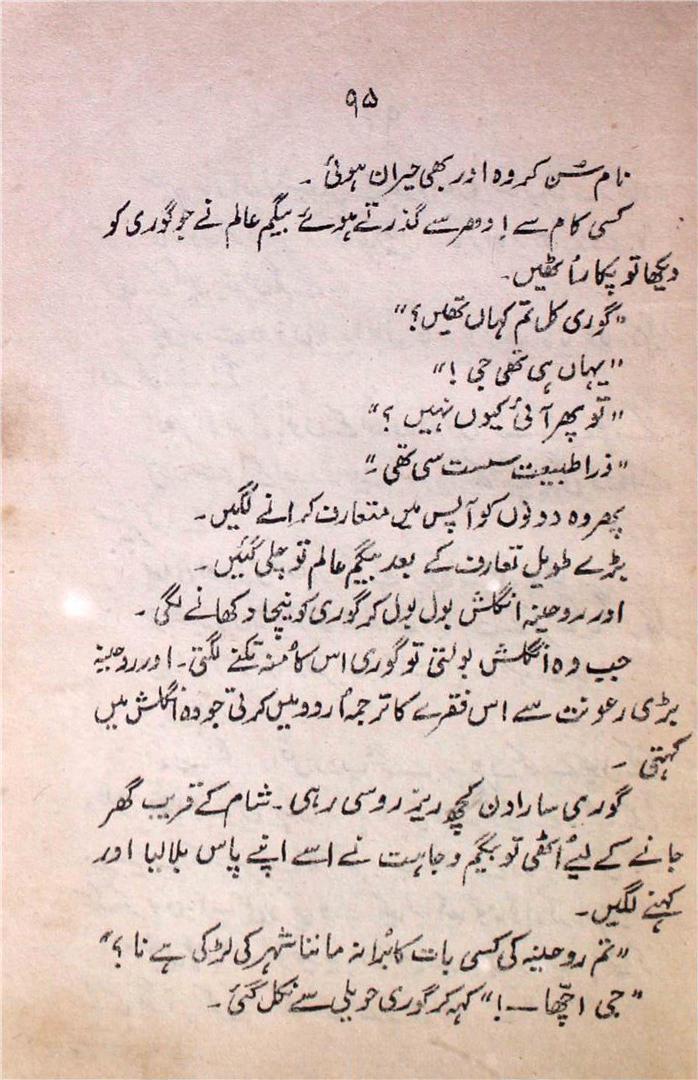 ۹۵
نام سُن کر وہ اور بھی حیران ہوئی ۔
کسی کام سے اِدھر سے گذرتے ہوئے بیگم عالم نے جو گوری کو
دیکھا تو پکار اُٹھیں۔
"گوری کل تم کہاں تھیں؟"
"یہاں ہی تھی جی !"
"تو پھر آئی کیوں نہیں ؟"
"ذرا طبیعت سست سی تھی ۔"
پھر وہ دونوں کو آپس میں متعارف کرانے لگیں۔
بڑے طویل تعارف کے بعد بیگم عالم تو چلی گئیں۔
اور روحینہ انگلش بول بول کر گوری کو نیچا دکھانے لگی ۔
جب وہ انگلش بولتی تو گوری اس کا مُنہ تکنے لگتی۔ اور روحینہ
بڑی رعونت سے اس فقرے کا ترجمہ اُردو میں کرتی جو وہ انگلش میں
کہتی ۔
گوری سارا دن کچھ ریزروسی رہی ۔ شام کے قریب گھر
جانے کے لیے اُٹھی تو بیگم وجاہت نے اسے اپنے پاس بلا لیا اور
کہنے لگیں۔
"تم روحینہ کی کسی بات کا بُرا نہ ماننا شہر کی لڑکی ہے نا ؟"
"جی اچّھا ــ !" کہہ کر گوری حویلی سے نکل گئی ۔